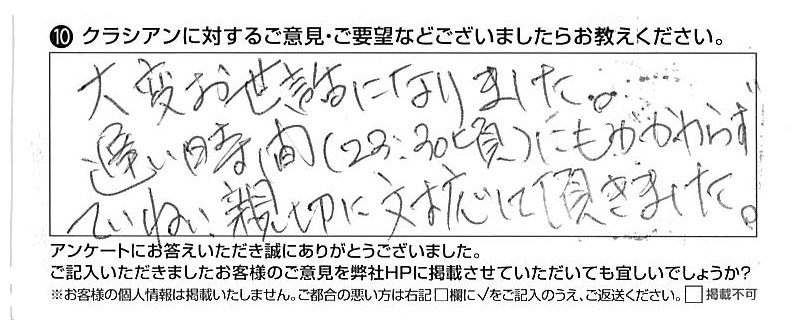 ❿ クラシアンに対するご意見・ご要望などございましたらお教えください。
大変お世話になりました。
遅い時間(23:30頃)にもかかわらず
ていねい、親切に対応して頂きました。
アンケートにお答えいただき誠にありがとうございました。
ご記入いただきましたお客様のご意見を弊社HPに掲載させていただいても宜しいでしょうか?
※お客様の個人情報は掲載いたしません。ご都合の悪い方は右記□欄に√をご記入のうえ、ご返送ください。□掲載不可